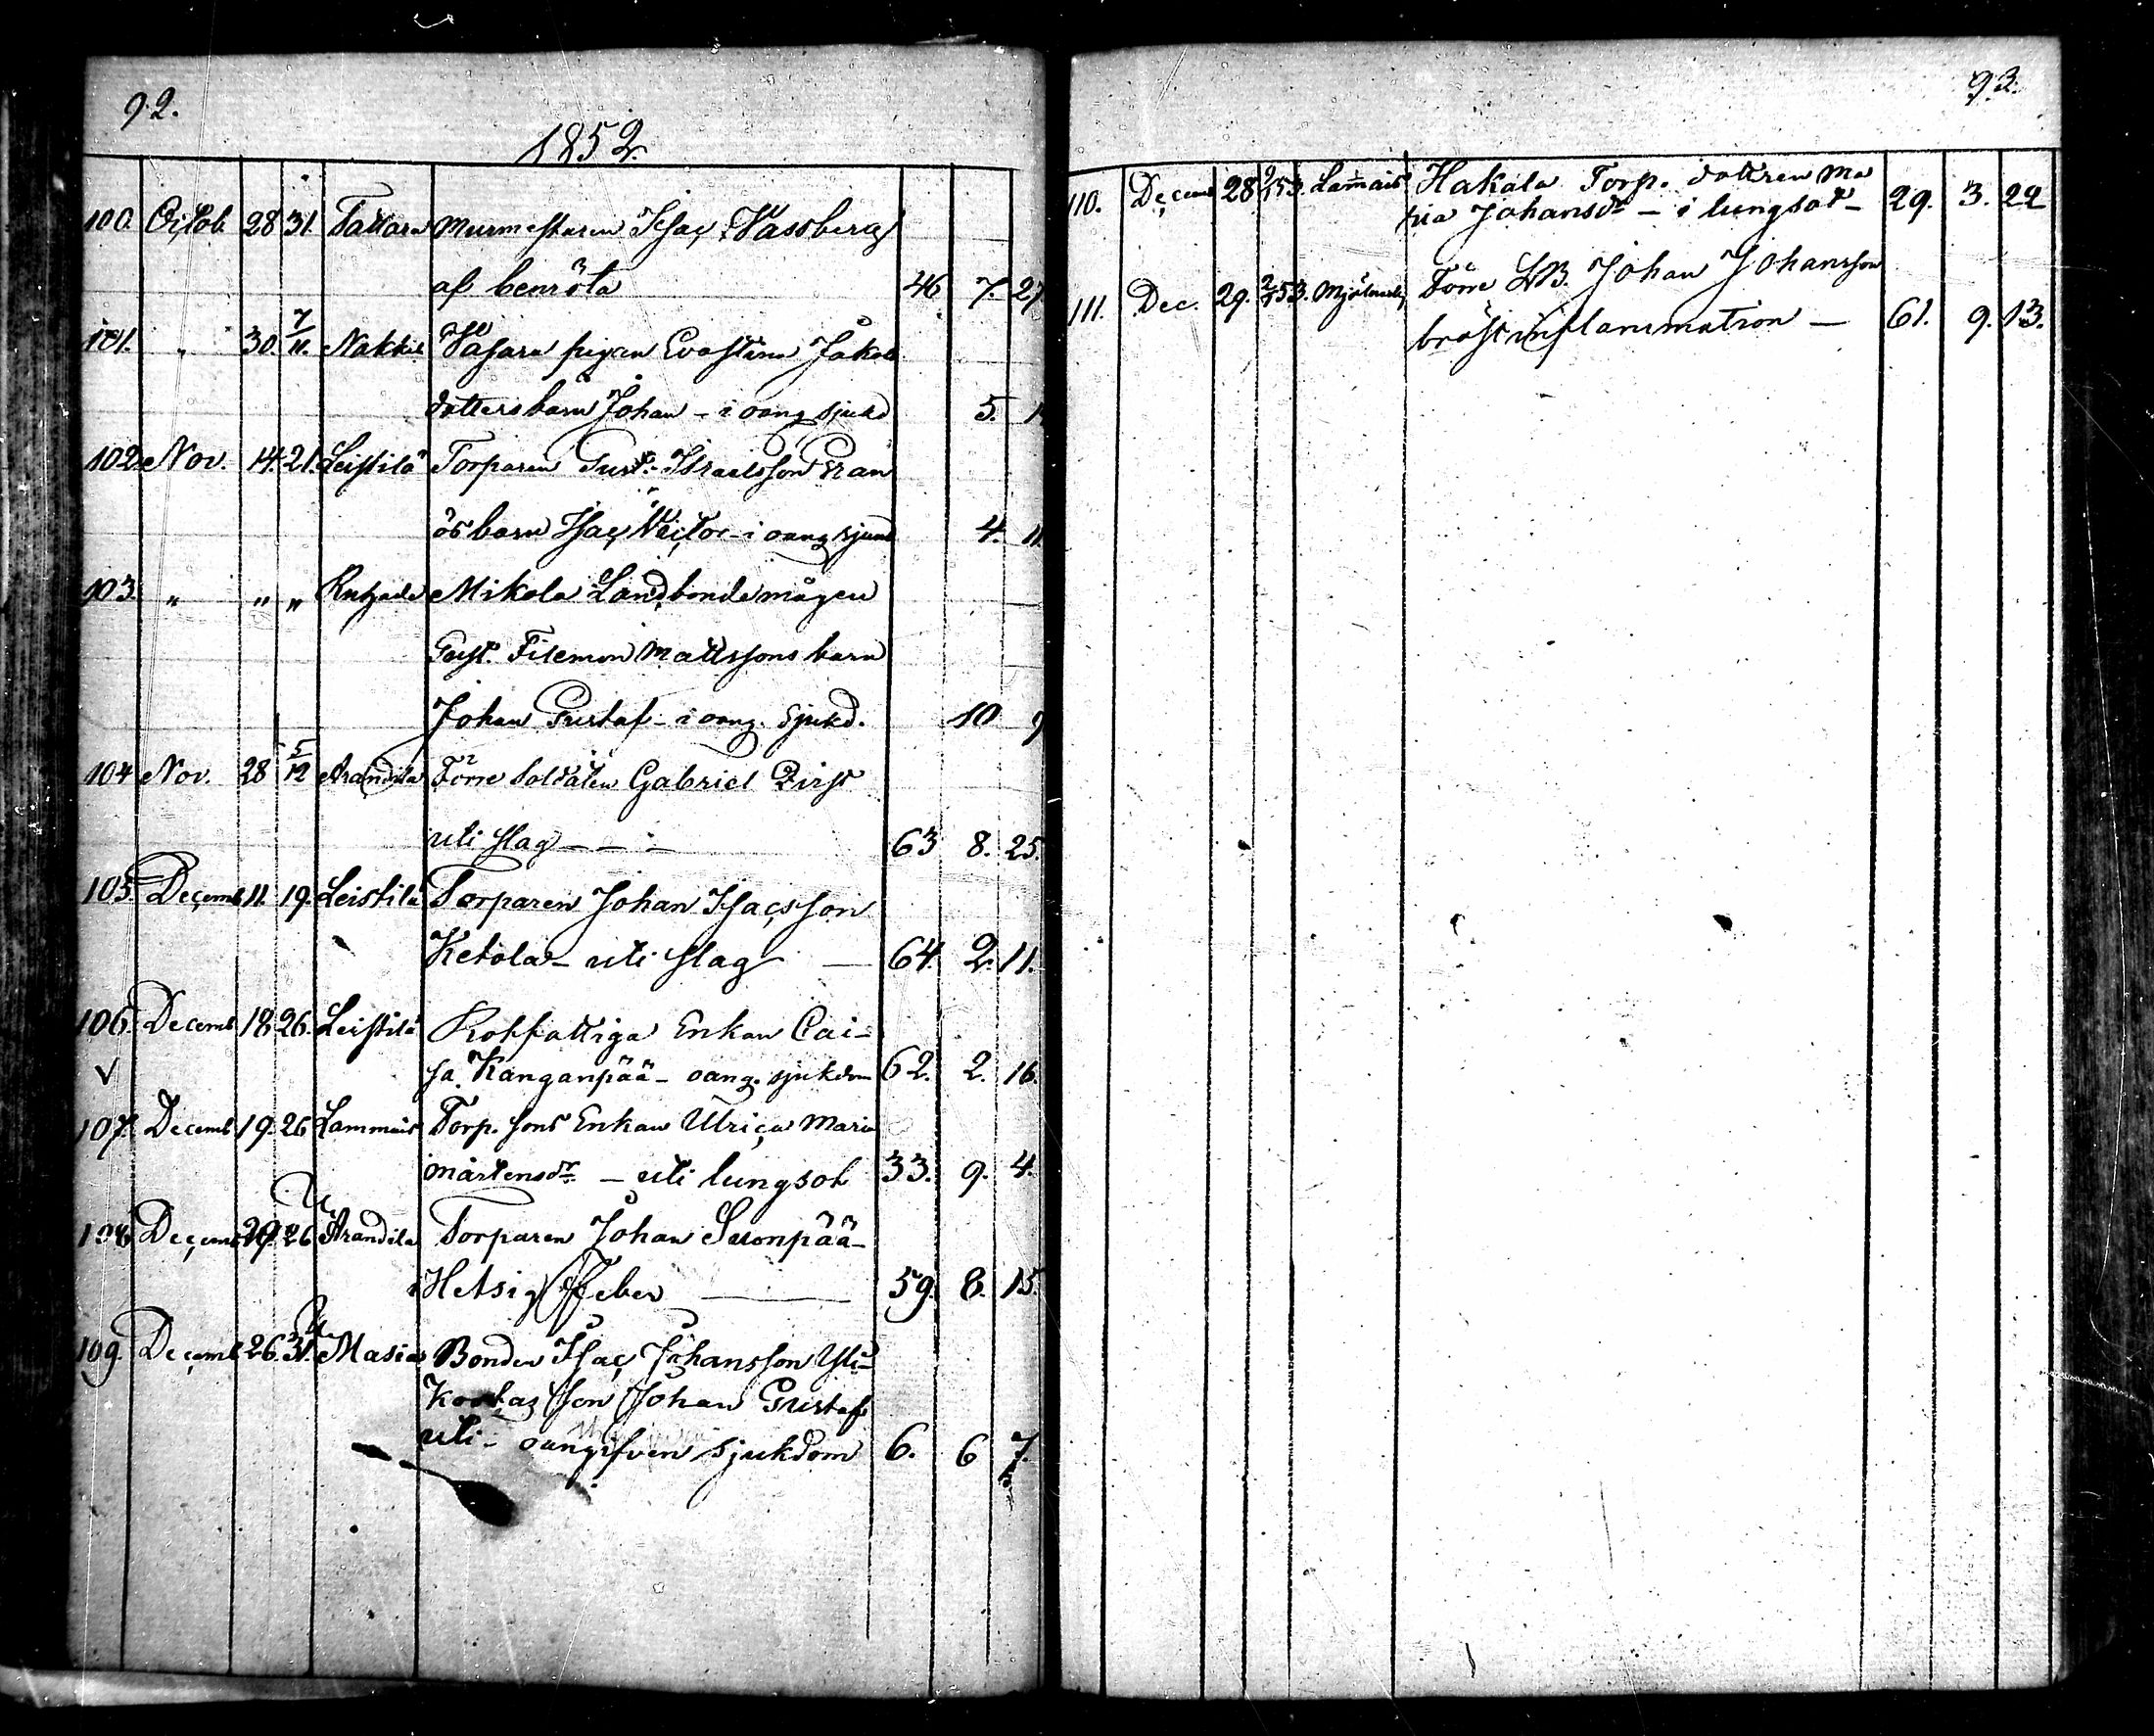 92.
1852.
100. Octob. 28 31. Tattara Murmestaren Isac Wassberg
af benröta 46 7. 27
101. " 30. 7/11. Nakkil Wasara pigan Evastina Jakobs
dotters barn Johan - i oang sjukd 5.
102. Nov. 14. 21. Leistilä Torparen Gust. Israelsson Gran
ös barn Isac Victor - i oang sjukd 4. 11.
103. " " " Mikola Landbonde mågen
Gust. Filemon Mattssons barn
Johan Gustaf - i oang. sjukd. 10 9
104 Nov. 28 5/12 Arandila Förre Soldaten Gabriel
uti slag - - - 63 8. 25.
105. Decemb 11. 19. Leistilä Torparen Johan Isacsson
Ketola - uti slag — 64. 2. 11.
106. Decemb 18. 26. Leistilä Rotfattiga Enkan Cai-
√ sa Kanganpää - oang. sjukdom 62. 2. 16.
107. Decemb 19. 26 Lammais Torp. sons Enkan Ulrica Maria
Mårtensdr - uti lungsot 33. 9. 4.
108 Decemb 26 Arandila Torparen Johan Suonpää -
i Hetsig Feber — 59. 8. 15.
109. Decemb 26. 31. Masia Bonden Isac Johansson Yli-
Kookas son Johan Gustaf
uti - oangifven sjukdom 6. 6 7.
93.
110. Decemb 28 2/1 53. Lamais Hakala Torp. dottren Ma
ria Johansdr - i lungsot - 29. 3. 22
111. Dec. 29. 2/1 53. Förre LB. Johan Johansson
bröst inflammation — 61. 9. 13.